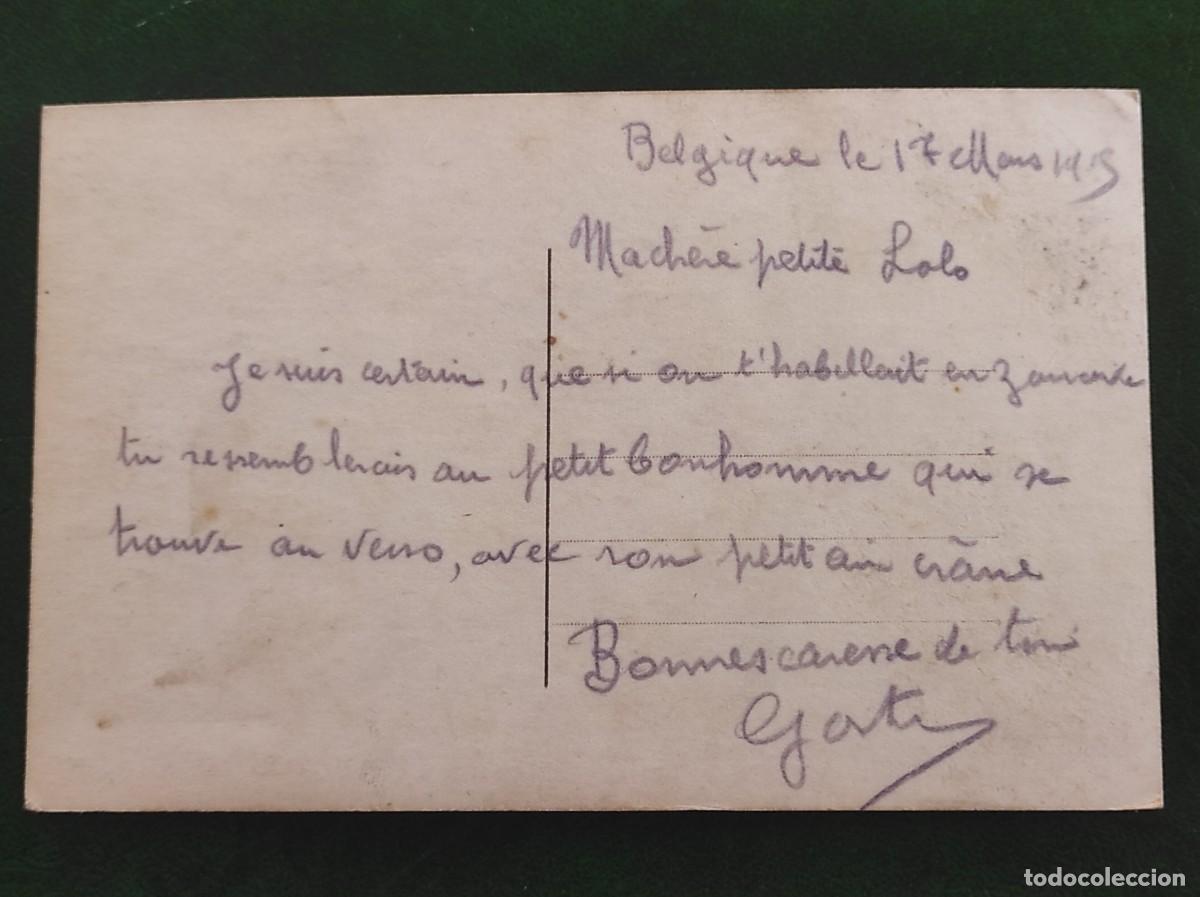 Belgique le 17 Mars 1915
Machère petite Lolo
Je suis certain, que si on t'habillait en Zouave
tu ressemblerais au petit bonhomme qui se
trouve au verso, avec son petit air crâne
Bonnes caresse de ton
todocoleccion